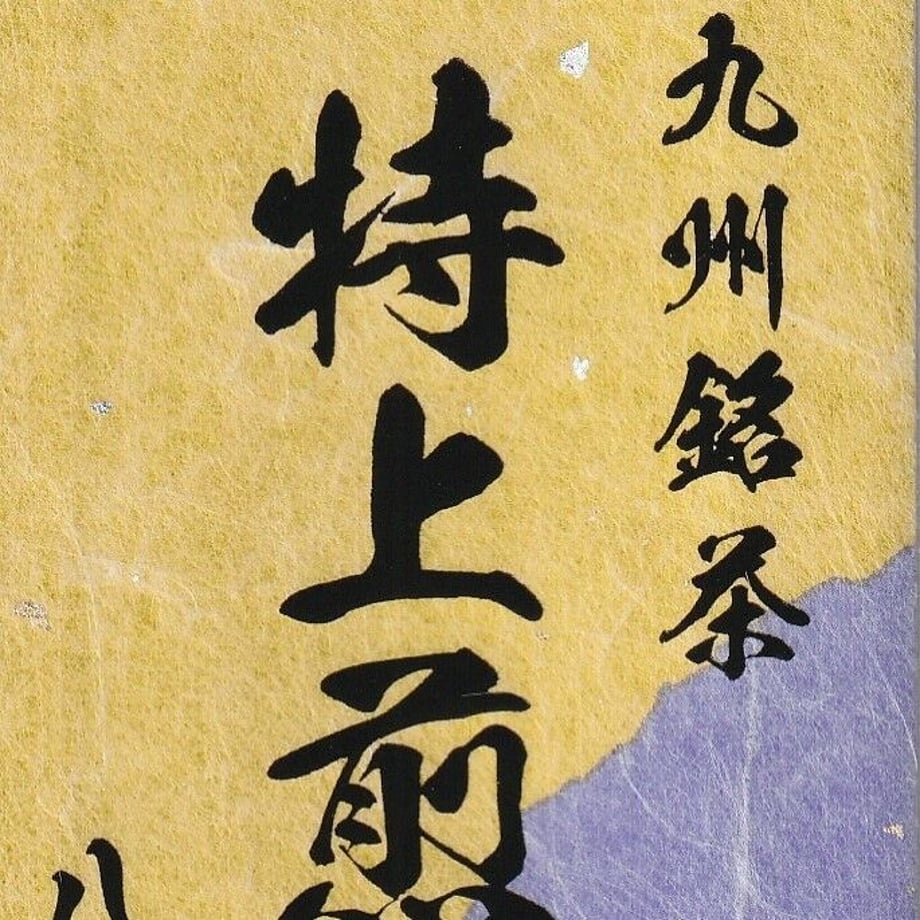 九州銘茶
特上煎
八